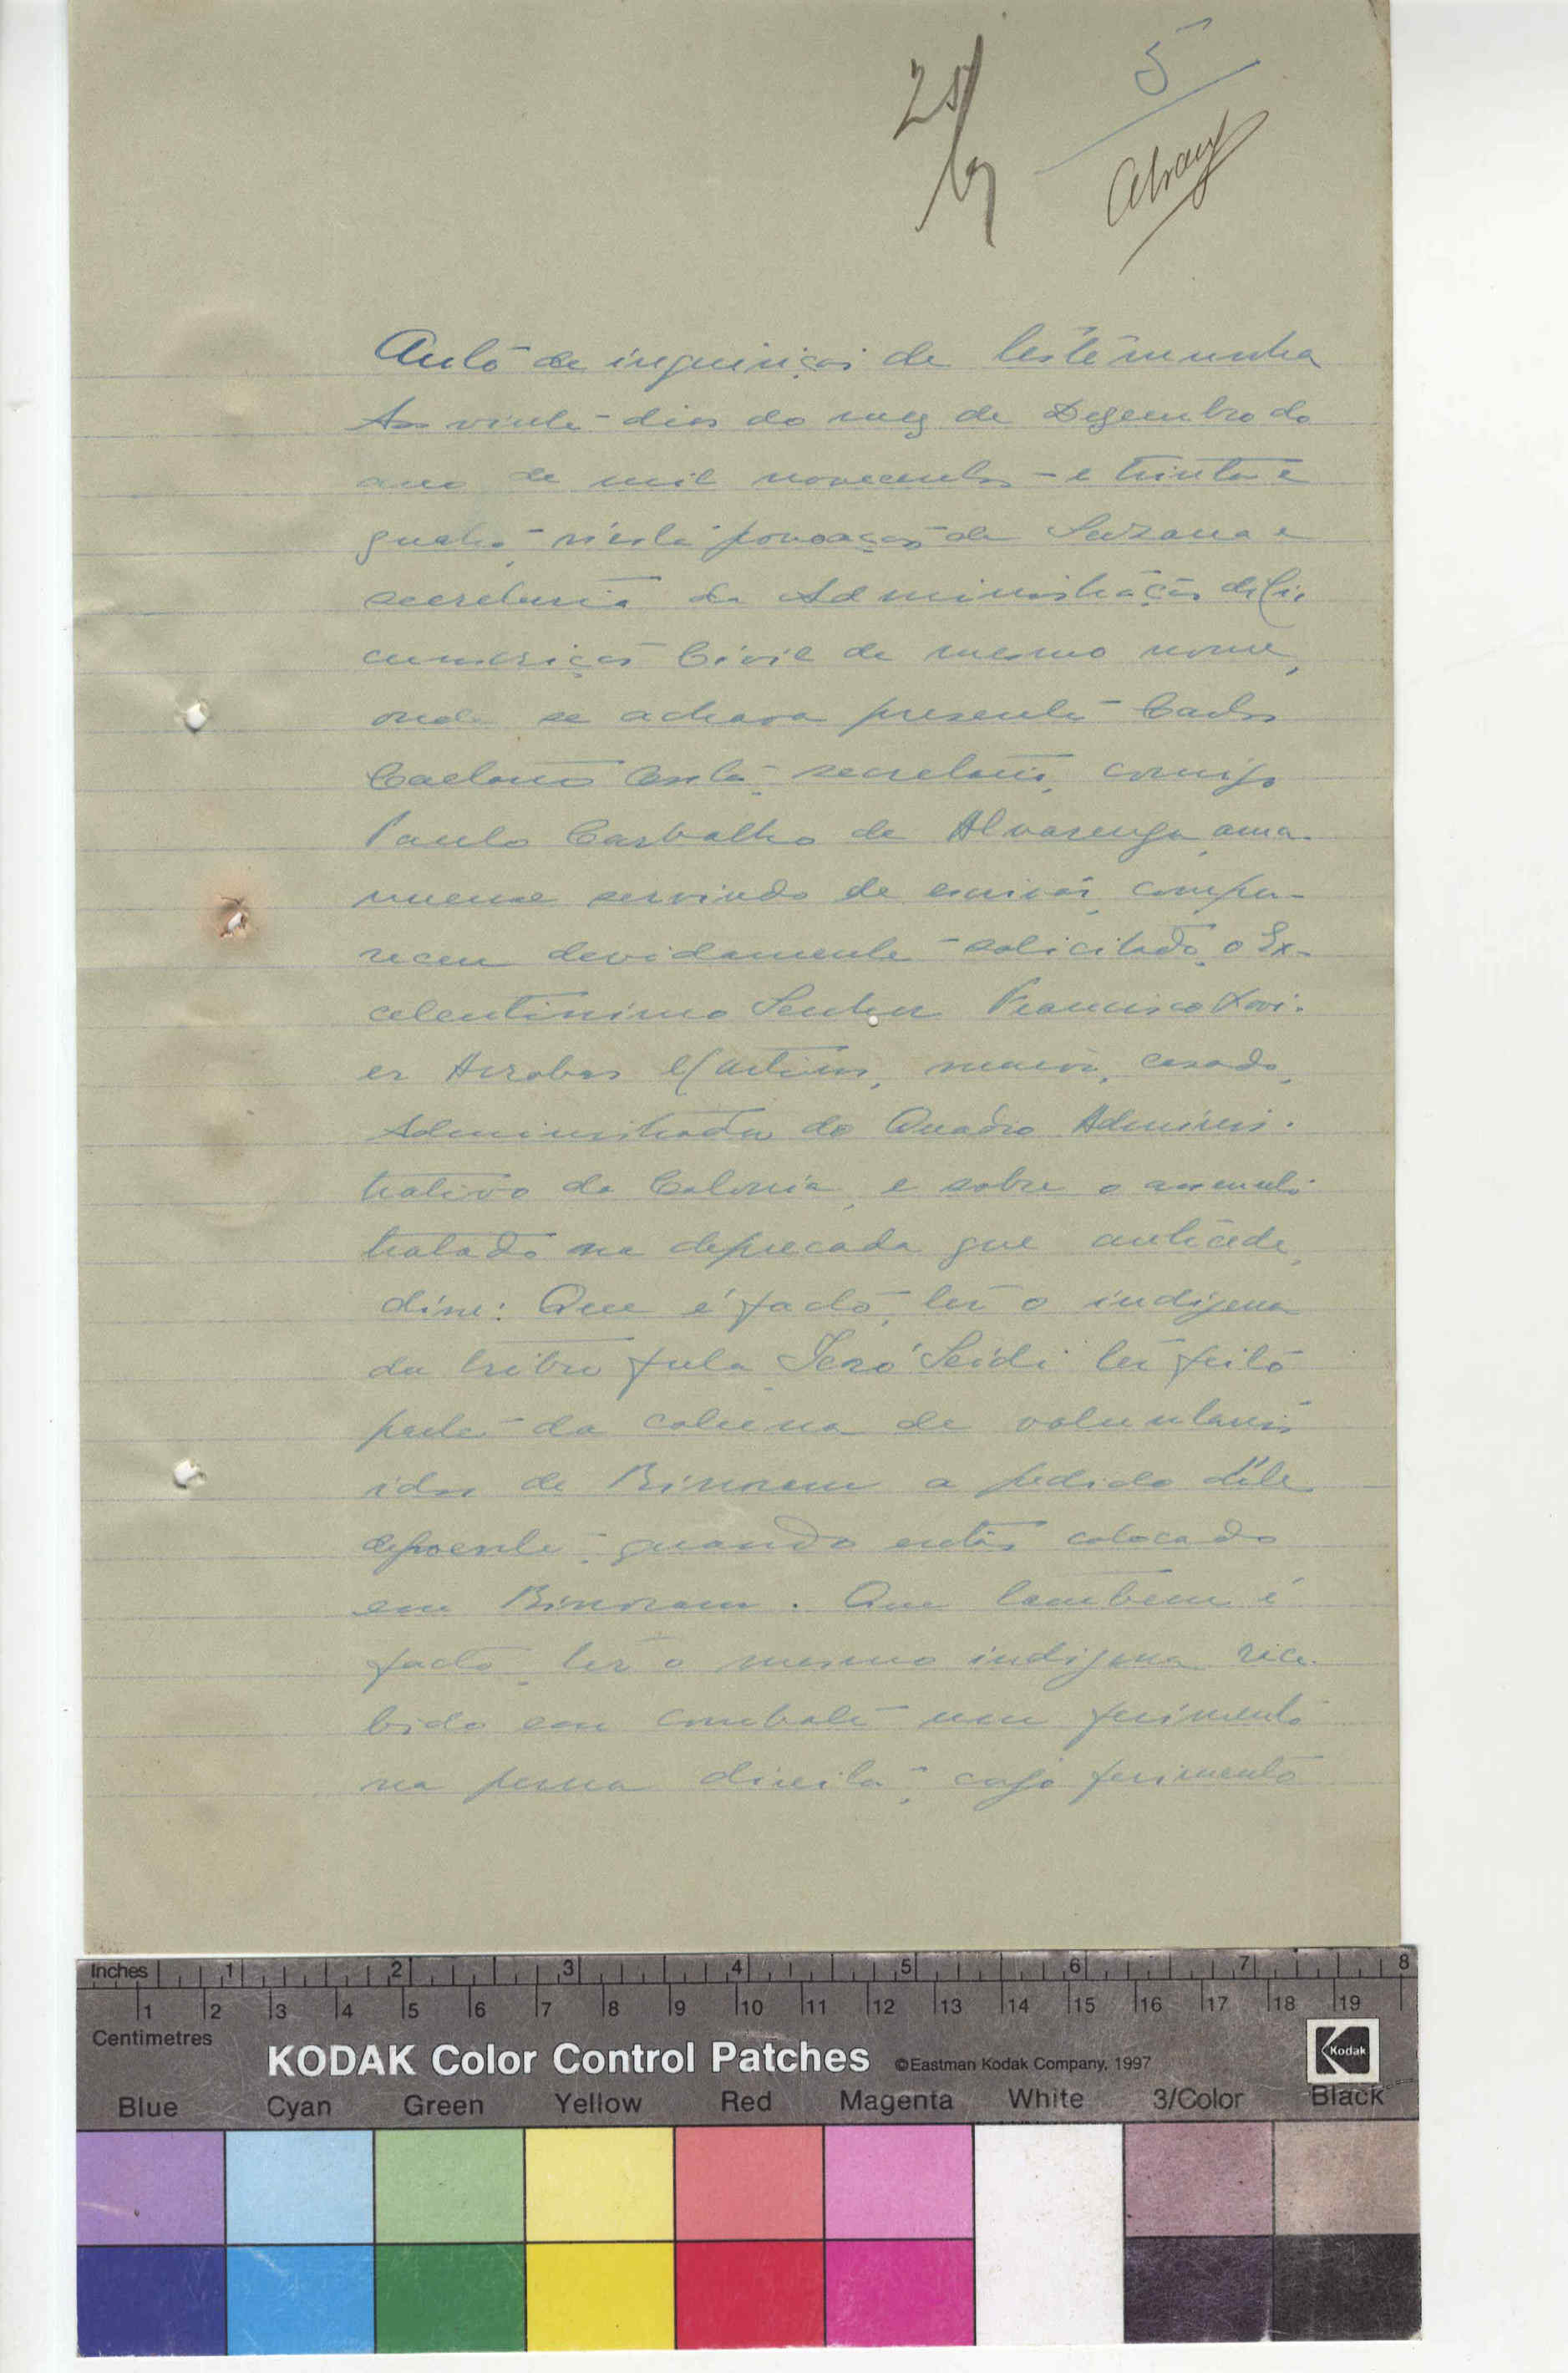 5
Auto de inquirição de testemunha
Aos vinte dias do mez de Dezembro do
ano de mil novecentos e trinta e
quatro, n'esta povoação de Suzana e
secretaria da Administração da Cir
cunscrição Civil do mesmo nome,
onde se achava presente Carlos
Caetano Costa, secretario, comigo
Paulo Carvalho de Alvarenga, ama-
nuense servindo de escrivão, compa-
receu devidamente solicitado, o Ex-
celentissimo Senhor Francisco Xavi-
er Arrobas Martins, maior, casado,
Administrador do Quadro Adminis-
trativo da Colonia, e sobre o assunto
tratado na deprecada que antecede,
disse: Que é facto, ter o indigena
da tribu fula Seidi ter feito
parte da coluna de voluntarios
idos de a pedido dêle
depoente, quando então colocado
em Que tambem é
facto, ter o mesmo indigena rece-
bido em combate um ferimento
na perna direita, cujo ferimento
Inches 1 2 3 4 5 6 7 8
1 2 3 4 5 6 7 8 9 10 11 12 13 14 15 16 17 18 19
Centimetres
KODAK Color Control Patches ©Eastman Kodak Company, 1997 Kodak
Blue Cyan Green Yellow Red Magenta White 3/Color Black